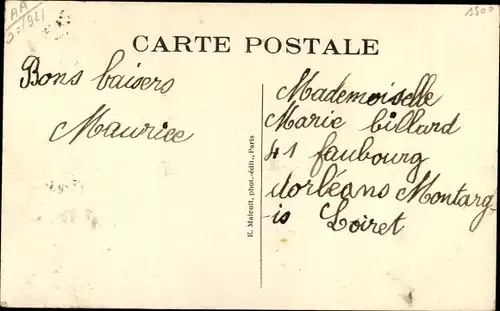 CARTE POSTALE
Bons baisers
Maurice
E. Maleuit, phot.-édit., Paris
Mademoiselle
Marie billard
41 faubourg
dorléans Montarg-
-is Loiret